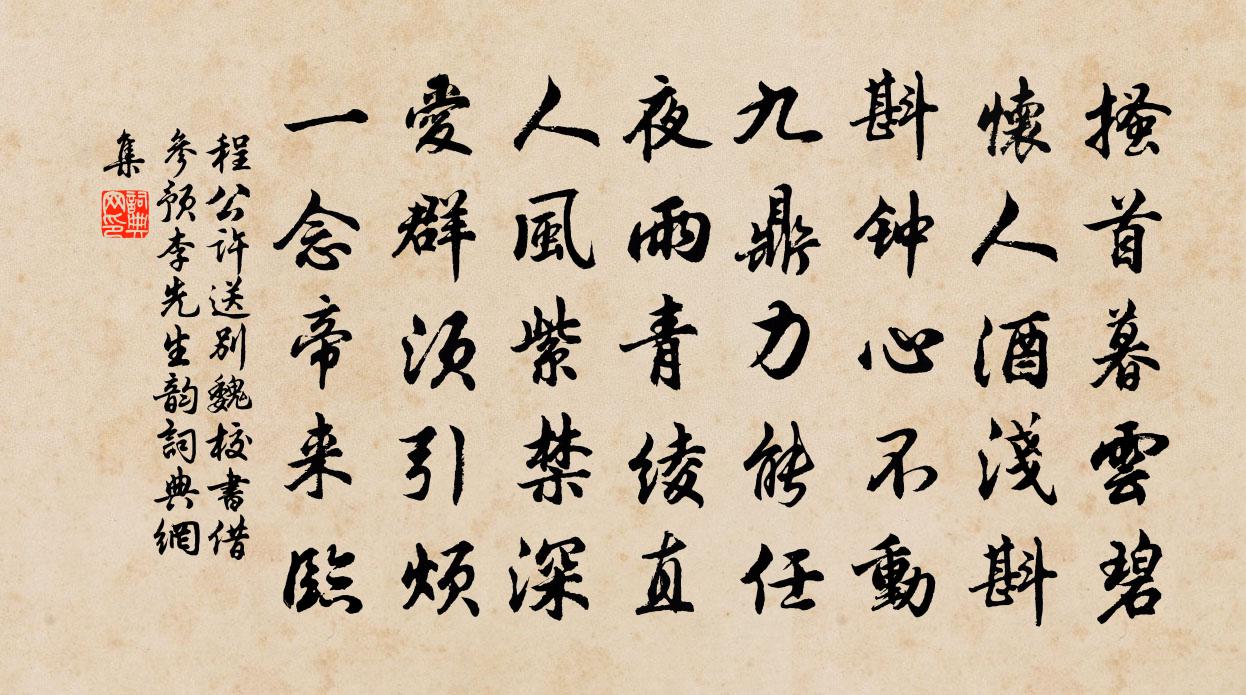 搔首暮雲碧
懷人酒淺斟
斟钟心不動
九鼎力能任
夜雨青绫直
人風紫禁深
愛群须引烦
一念帝来臨
程公许送別魏校書借
參预李先生韵詞典網
集
詞典網印